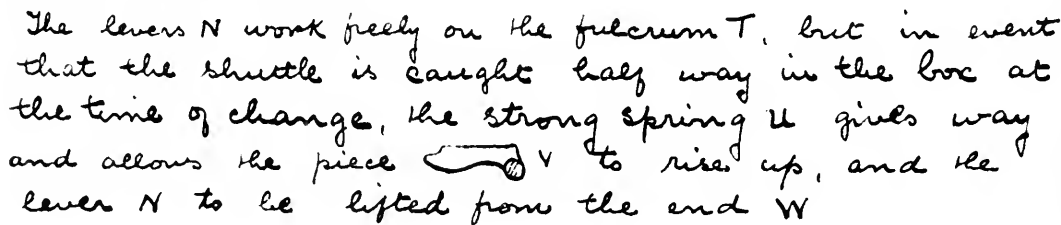 The levers N work freely on the fulcrum T, but in event
that the shuttle is caught half way in the box at
the time of change, the strong spring U gives way
and allows the piece V to rise up, and the
lever N to be lifted from the end W